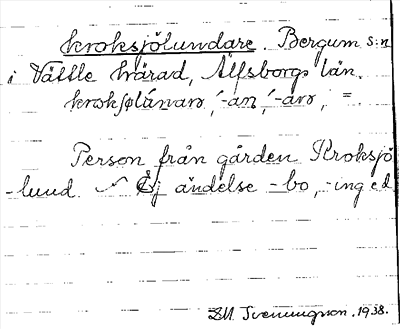 kroksjölundare. Bergum s:n
i Vättle härad, Älfsborgs län.
-an, -arɷ, =
Person från gården Kroksjö
-lund. Ej ändelse -bo, -ing ed
Svenungson. 1938.